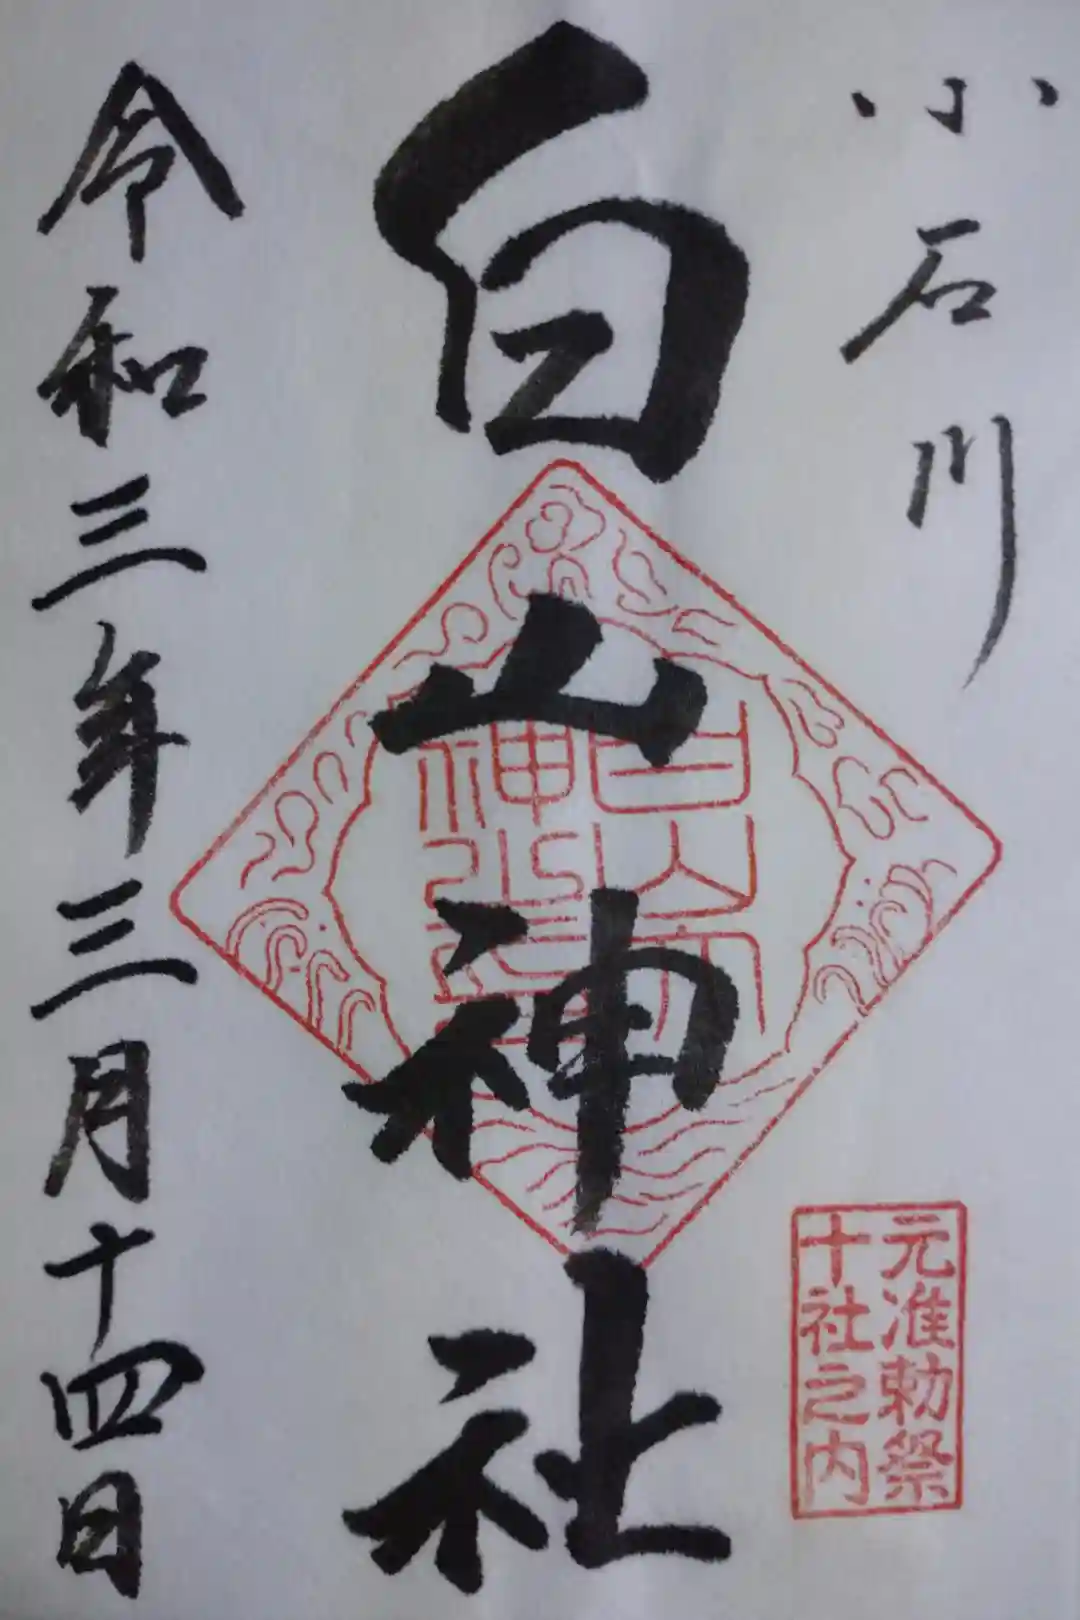 小石川
白山神社
令和三年三月十四日
元准勅祭
十社之内